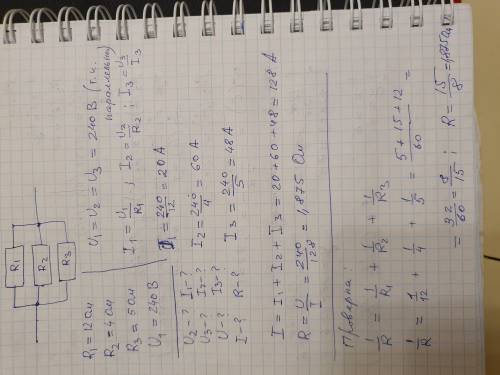 R1
R2
R3
R₁ = 12 Ом
R₂ = 4 Ом
R₃ = 5 Ом
U₁ = 240 В
U₂ - ? I₁ - ?
U₃ - ? I₂ - ?
U - ? I₃ - ?
I - ? R - ?
U₁ = U₂ = U₃ = 240 В (т.к.
параллельны)
I₁ = U₁/R₁ ; I₂ = U₂/R₂ ; I₃ = U₃/I₃
I₁ = 240/12 = 20 А
I₂ = 240/4 = 60 А
I₃ = 240/5 = 48 А
I = I₁ + I₂ + I₃ = 20 + 60 + 48 = 128 А
R = U/I = 240/128 = 1,875 Ом
Проверка:
1/R = 1/R₁ + 1/R₂ + 1/R₃
1/R = 1/12 + 1/4 + 1/5 = 5 + 15 + 12/60 =
= 32/60 = 8/15 ; R = 15/8 = 1,875 Ом